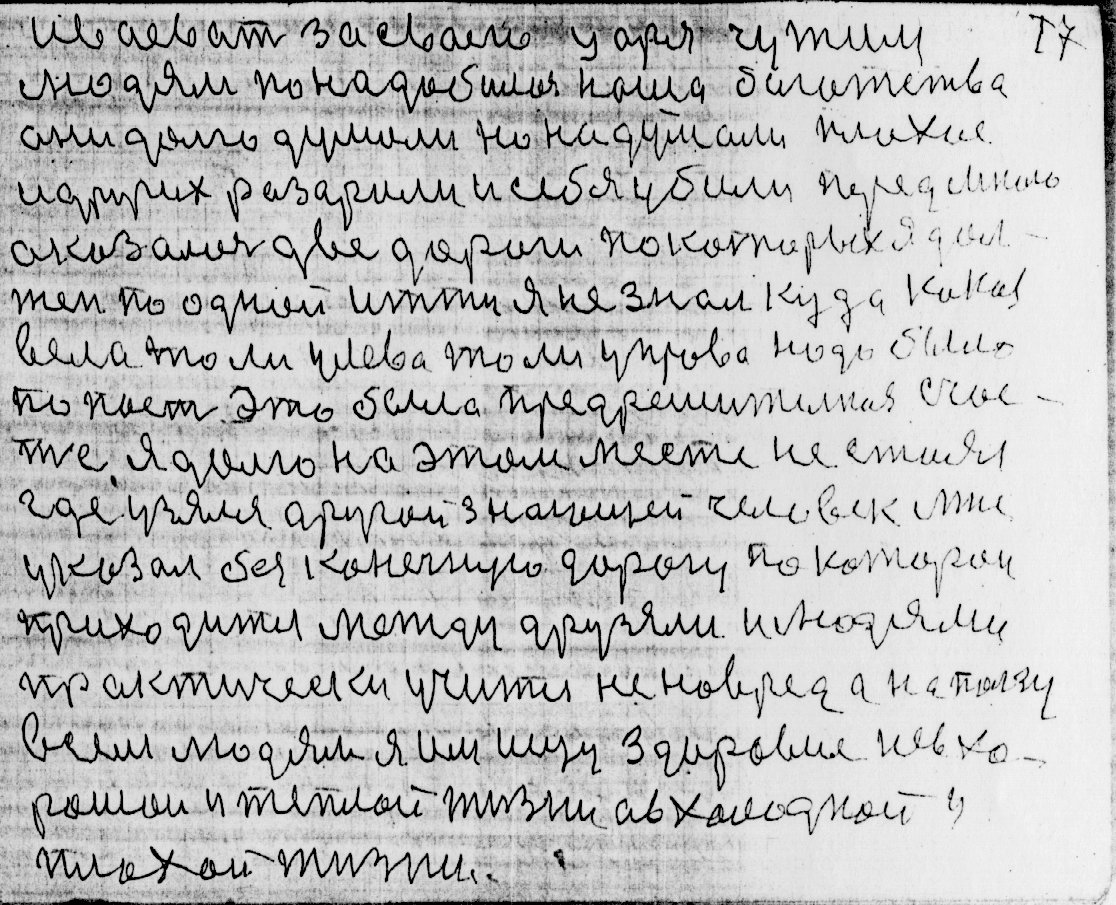 иваеват засваею царя чужим 17
людям понадобился наша богатства
они долго думали но надумали плохие
и других разарили и себя убили передмною
оказалоя две дороги по которых я дол-
жен по одной итти я не знал куда какая
вела толи улева толи управа надо было
попаст это была предрешителная счас-
тье я долго на этом месте не стоял
где узялся другой знающей человек мне
указал безконечную дорогу по которои
приходитя между друзями и людями
практически учитя не новред а на ползу
всем людям я им ищу здоровие не в хо-
рошои и теплой жизни а в холодной и
плохой жизни.